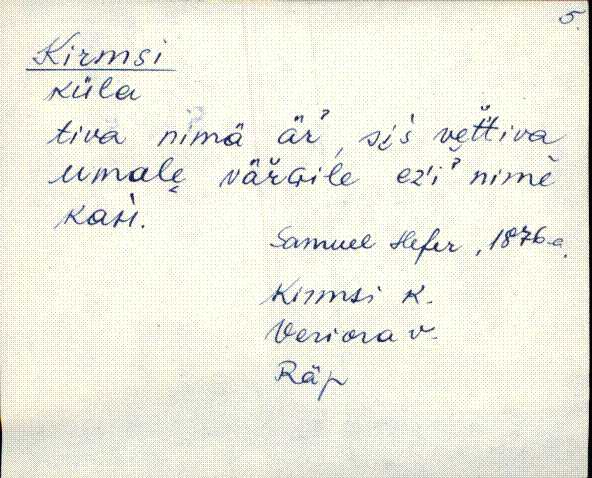 5.
Kirmsi
küla
tiva nimä är̀ˀ, si̬i̬s vet̆t̆iva
umale̬ vär̆G̀ile ez'iˀ nimè
Samuel Hefer, 1876 a.
Kirmsi k.
Veriora v.
Räp